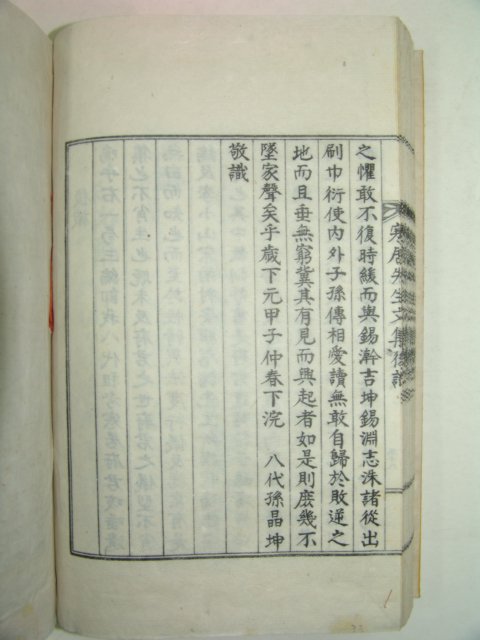 之懼敢不復時緩而與錫澣吉坤錫淵志洙諸從出
刷巾衍使內外子孫傳相愛讀無敢自歸於敗逆之
地而且垂無窮冀其有見而興起者如是則庶幾不
墜家聲矣乎歲下元甲子仲春下浣 八代孫晶坤
敬識
先生文集後識